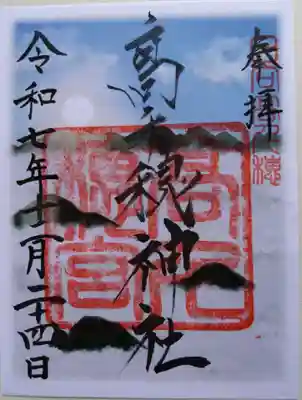 奉拝
高千穂神社
高千
穂宮
令和七年十一月二十四日